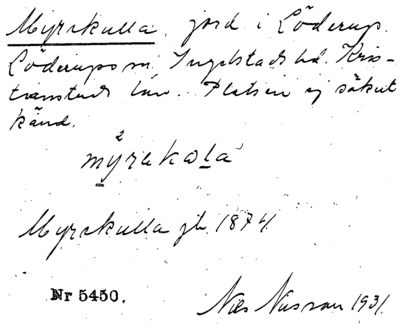 Myrekulla, jord i Löderup.
Löderups sn. Ingelstads hd. Kris-
tianstads län. Platsen ej säkert
känd.
Myrekulla jb. 1874.
Nr 5450.
Nils Nilsson 1931.